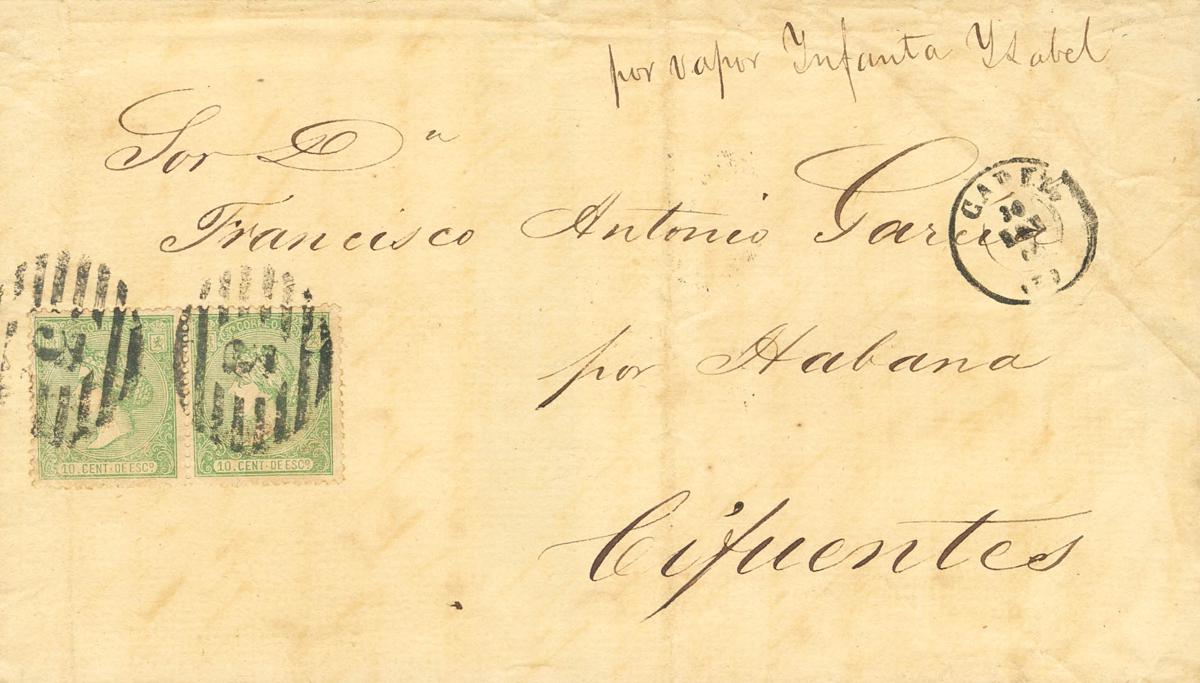 por vapor Infanta Ysabel
Sor Dn
Francisco Antonio Garcia
por Habana
Cifuentes
CORREO
10. CENT. DE ESCo
10. CENT. DE ESCo
3